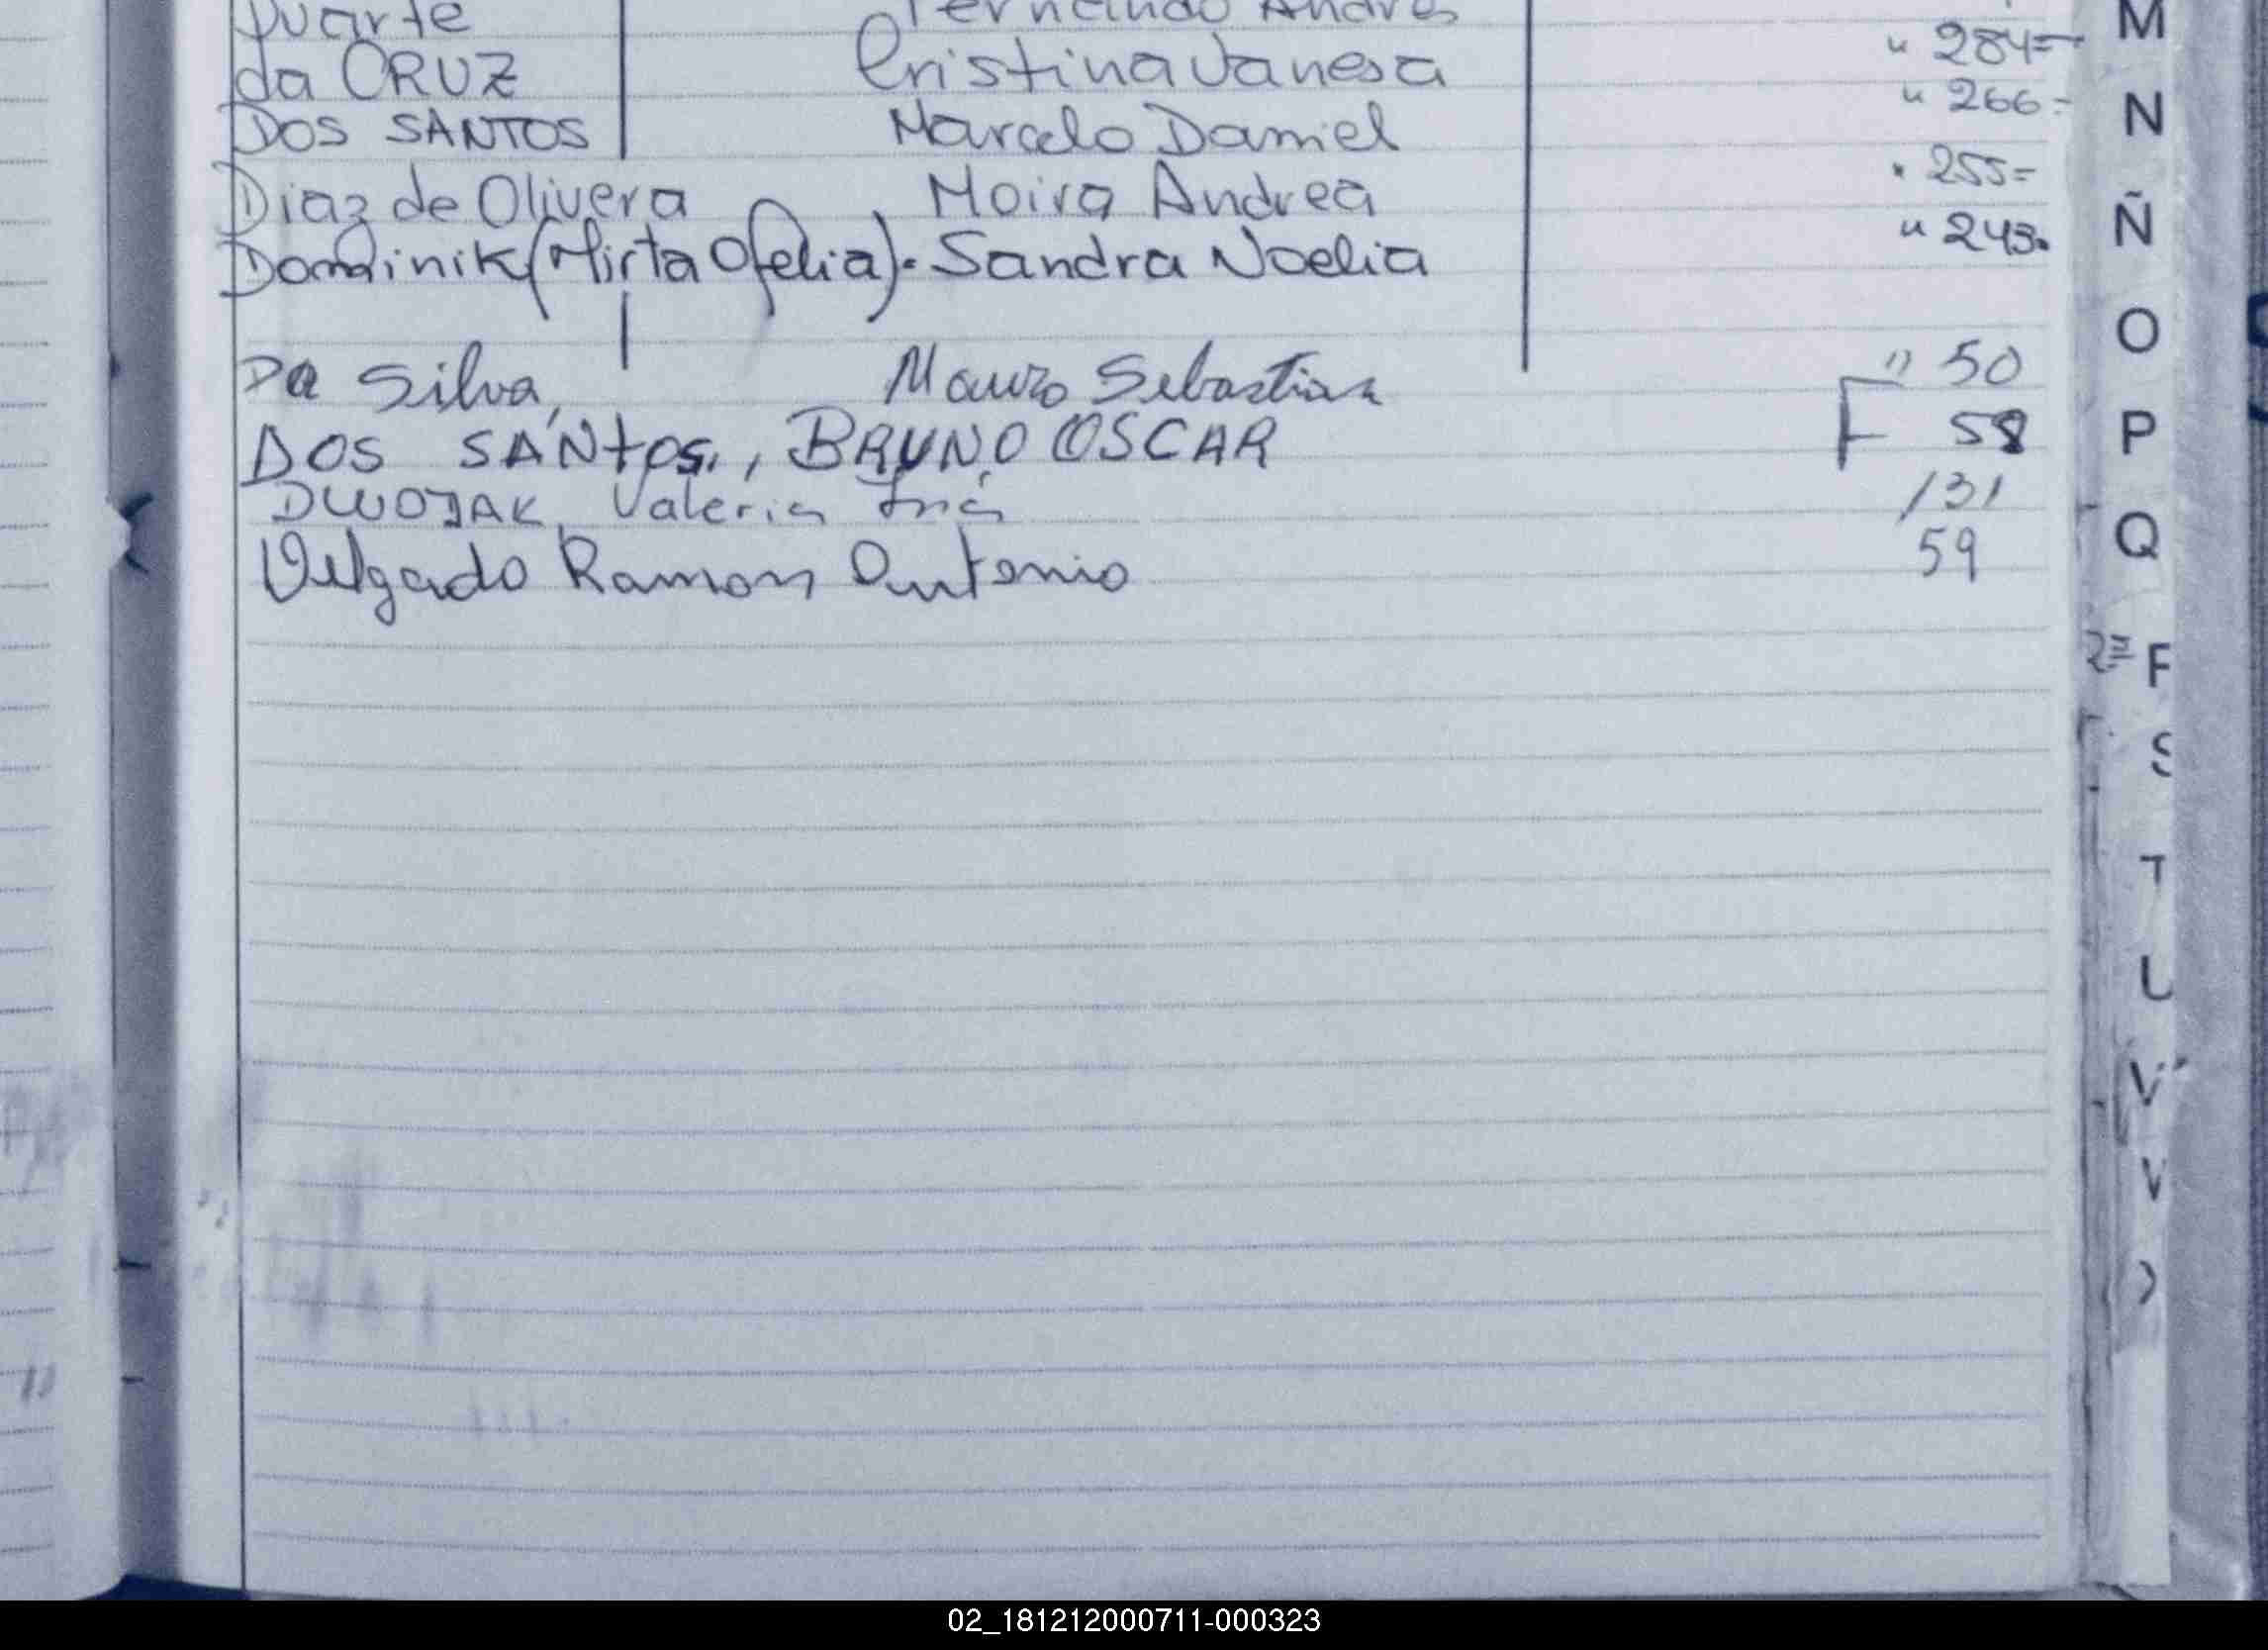 Duarte Fernando Andrés
da CRUZ Cristina Vanesa " 284=
DOS SANTOS Marcelo Daniel " 266=
Diaz de Olivera, Moira Andrea " 255=
Dominik (Mirta Ofelia). Sandra Noelia " 243.
Da Silva, Mauro Sebastian " 50
DOS SANtos, BRUNO OSCAR F 58
DWOJAK, Valeria 131
Delgado Ramon Antonio 59
M
N
Ñ
O
P
Q
S
T
U
V
02_181212000711-000323